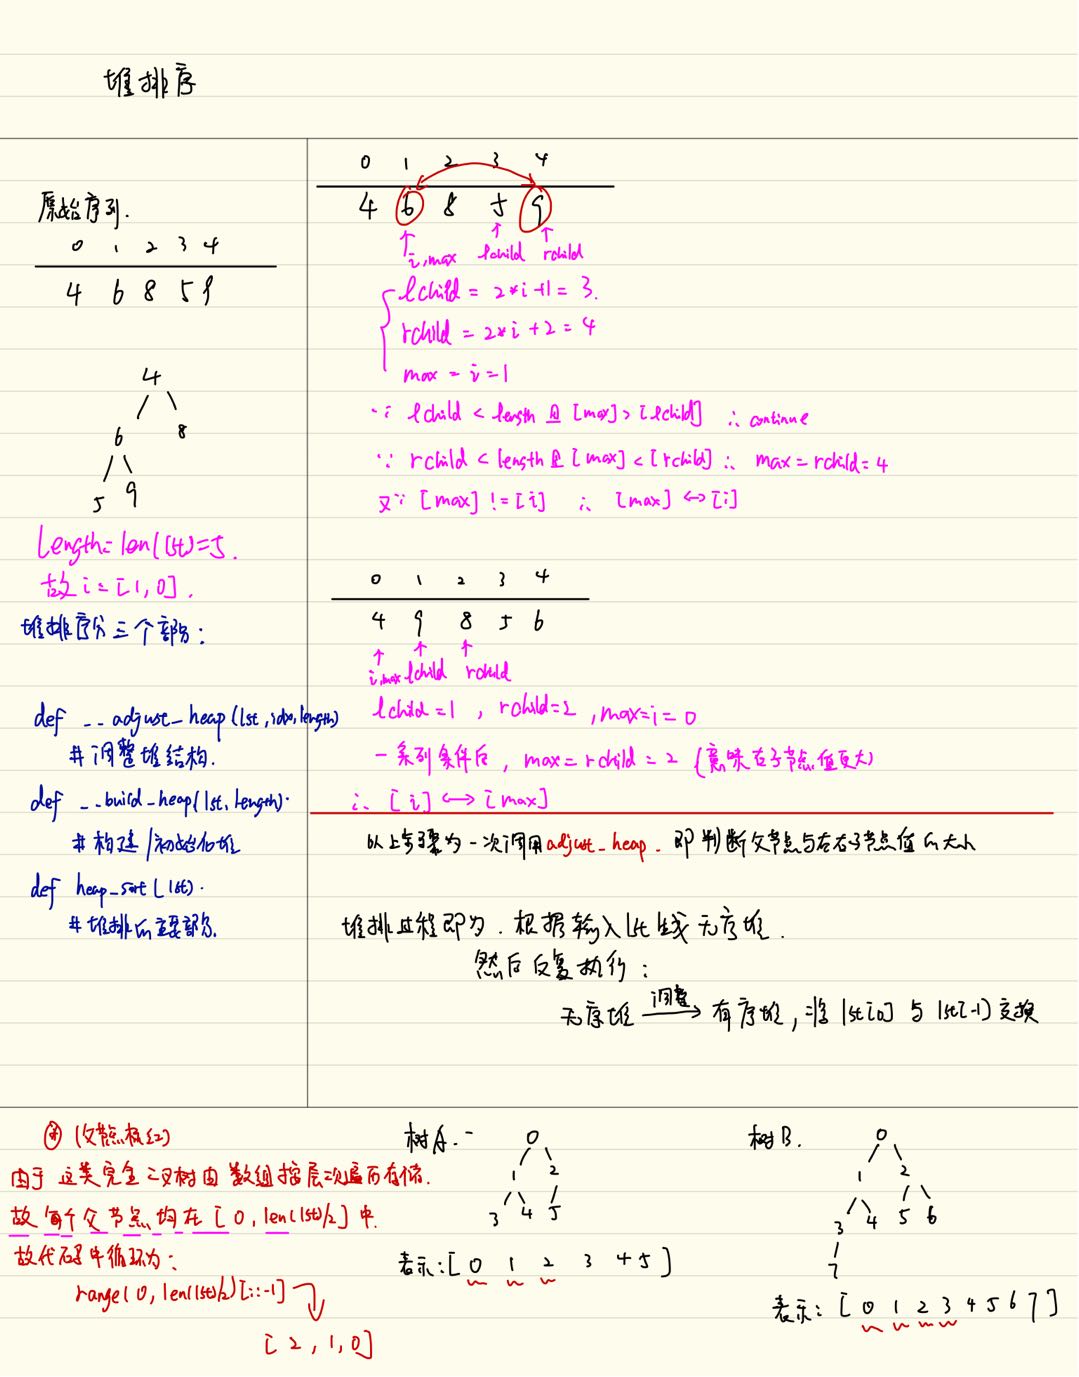 堆排序
原始序列.
0 1 2 3 4
4 6 8 5 9
4
6 8
5 9
length=len(lst)=5.
故 i=[1,0].
堆排序分三个部分:
def __adjust_heap(lst,idx,length)
#调整堆结构.
def __build_heap(lst,length).
#构建/初始化堆
def heap_sort(lst).
#堆排的主要部分.
0 1 2 3 4
4 6 8 5 9
i,max lchild rchild
lchild = 2*i+1 = 3.
rchild = 2*i+2 = 4
max = i = 1
∵ lchild < length 且 [max]>[lchild] ∴ continue
∵ rchild < length 且 [max]<[rchild] ∴ max=rchild=4
又∵ [max] != [i] ∴ [max]↔[i]
0 1 2 3 4
4 9 8 5 6
i,max lchild rchild
lchild=1 , rchild=2 , max=i=0
一系列条件后, max=rchild=2 (意味右子节点值更大)
∴ [i] ↔ [max]
以上步骤为一次调用adjust_heap. 即判断父节点与左右子节点值的大小
堆排过程即为. 根据输入lst 生成无序堆.
然后反复执行:
无序堆 调整→ 有序堆, 将 lst[0] 与 lst[-1] 交换
由于这类完全二叉树由数组按层次遍历存储.
故每个父节点均在 [0, len(lst)/2] 中.
故代码中循环为:
range(0, len(lst)/2)[::-1]
[2, 1, 0]
树A.
0
1 2
3 4 5
表示:[0 1 2 3 4 5]
树B.
0
1 2
3 4 5 6
7
表示: [0 1 2 3 4 5 6 7]